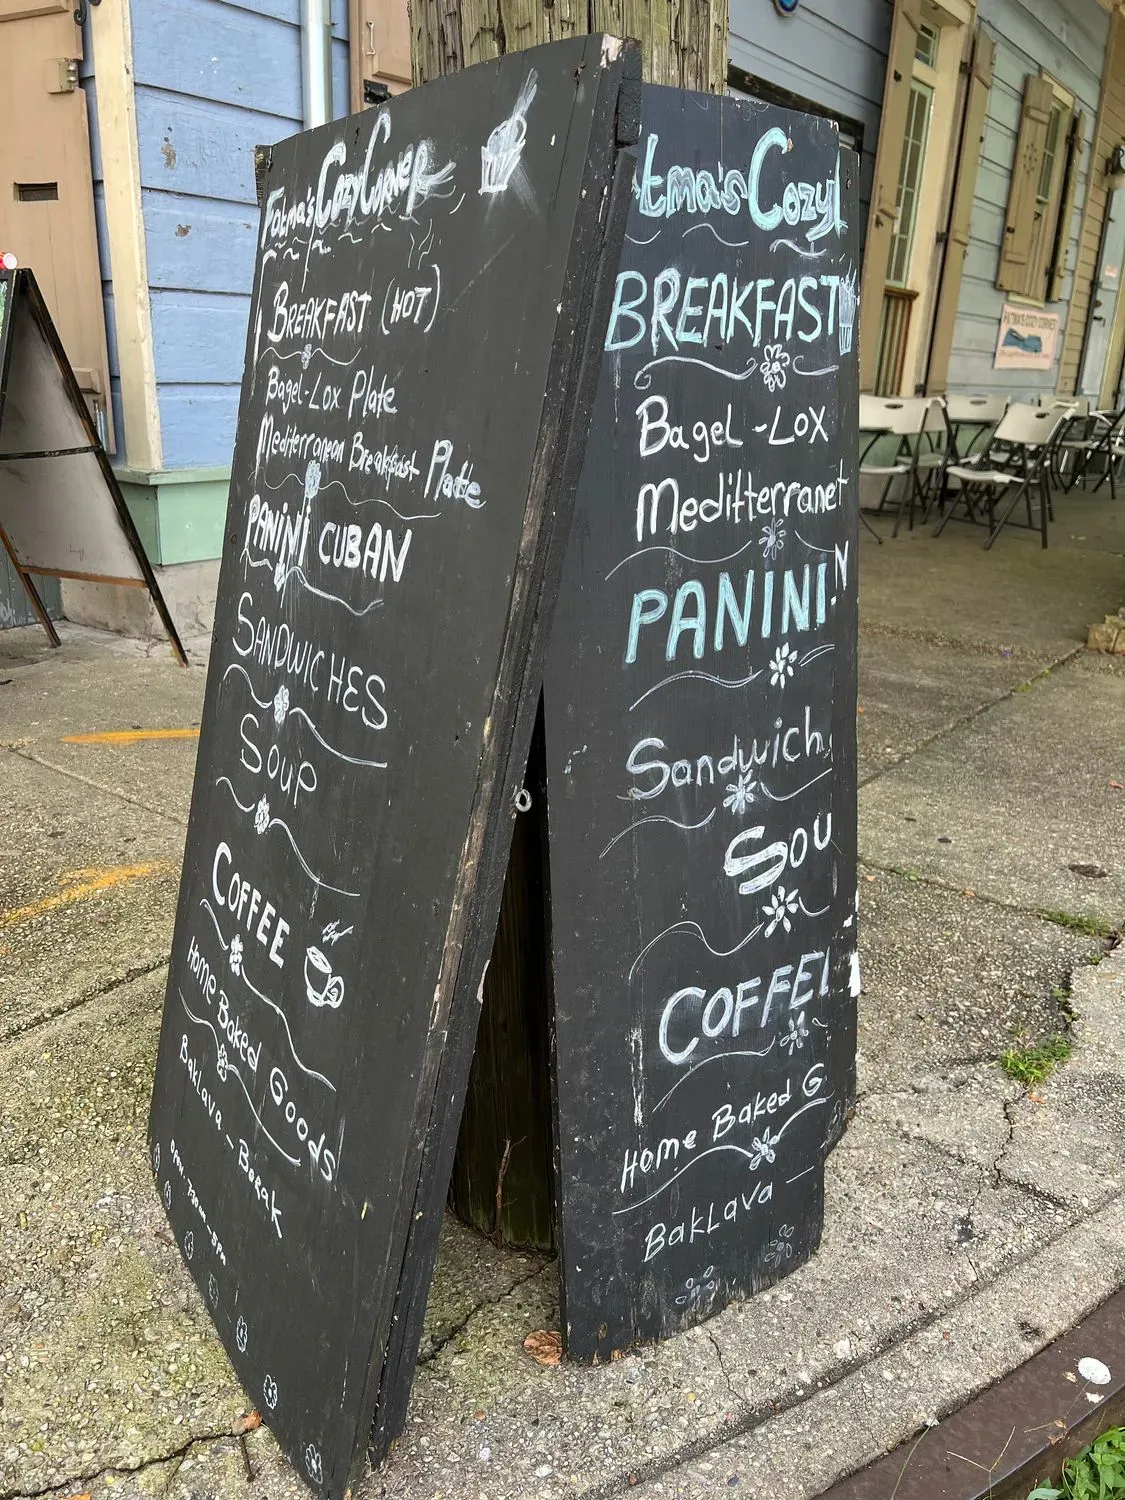 Fatma's Cozy Corner
BREAKFAST (HOT)
Bagel-Lox Plate
Mediterranean Breakfast Plate
PANINI CUBAN
SANDWICHES
Soup
COFFEE
Home Baked Goods
BakLava - Borak
tma's Cozy
BREAKFAST
Bagel - Lox
Meditterrane
PANINI
Sandwich
Sou
COFFE
Home Baked G
BakLava -
FATMA'S COZY CORNER